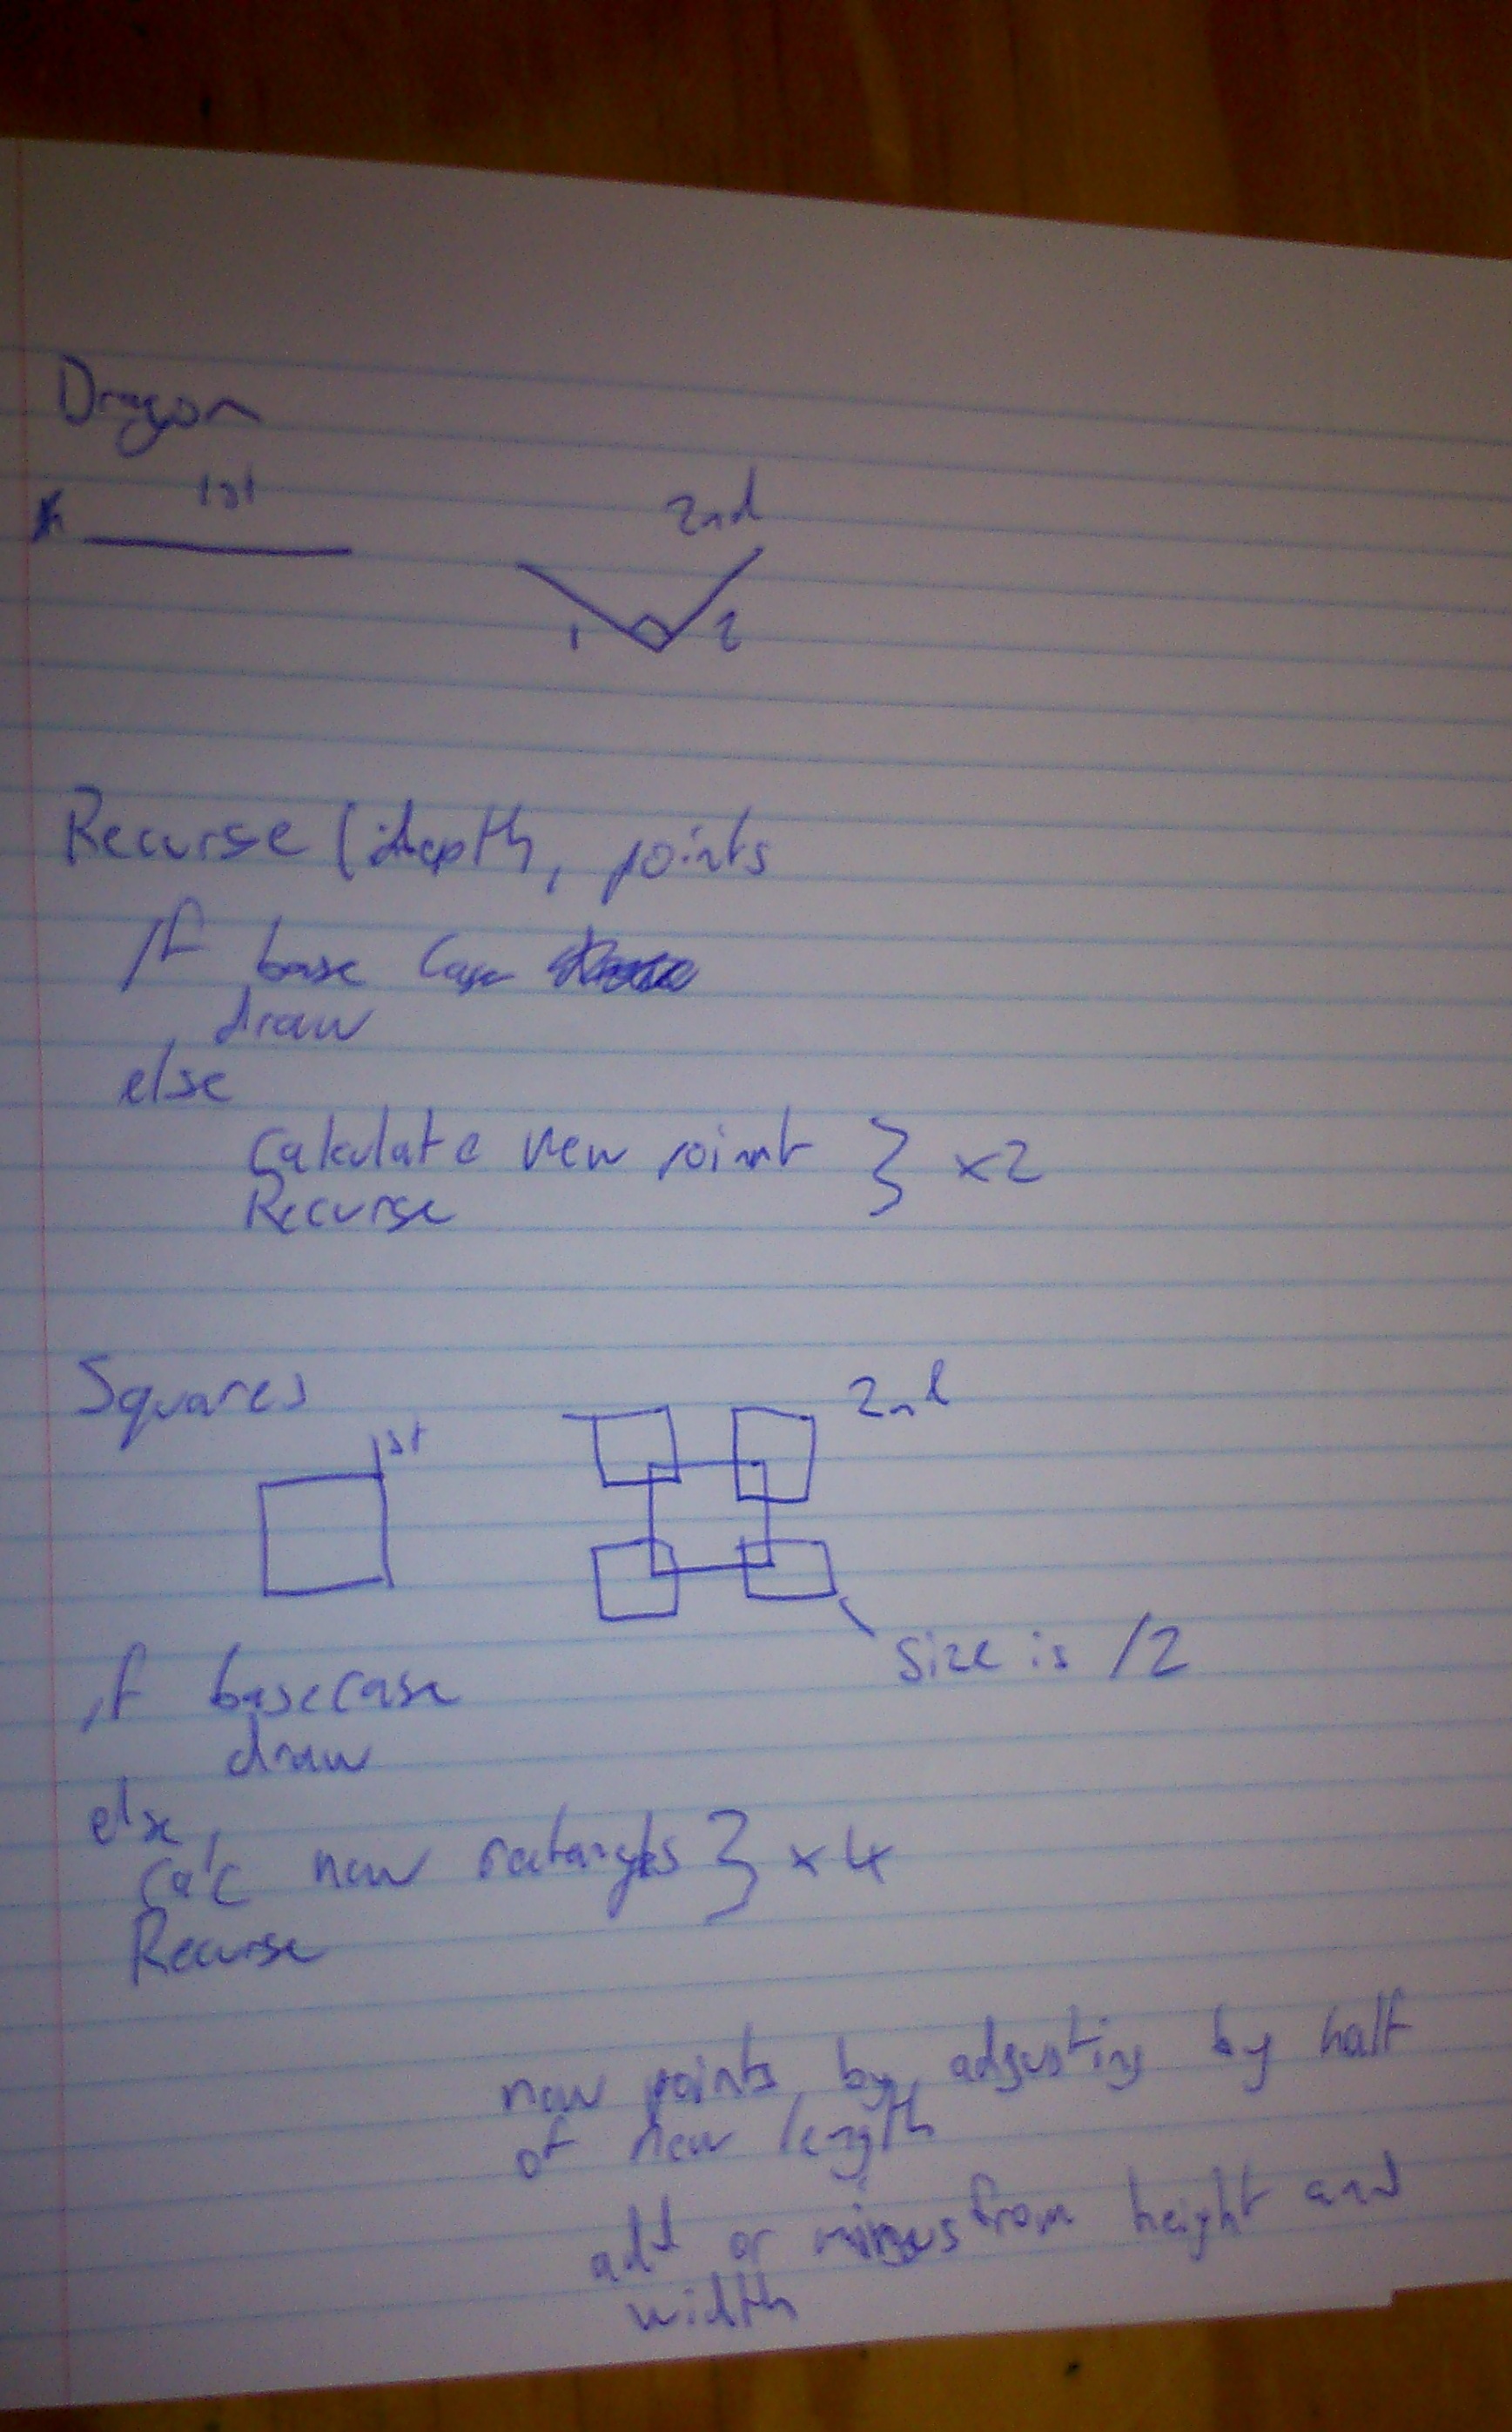 Dragon
1st
2nd
1 2
Recurse (depth, points
if base case
draw
else
calculate new point } x2
Recurse
Squares
1st
2nd
size is /2
if basecase
draw
else
calc new rectangles } x 4
Recurse
new points by adjusting by half
of new length
add or minus from height and
width